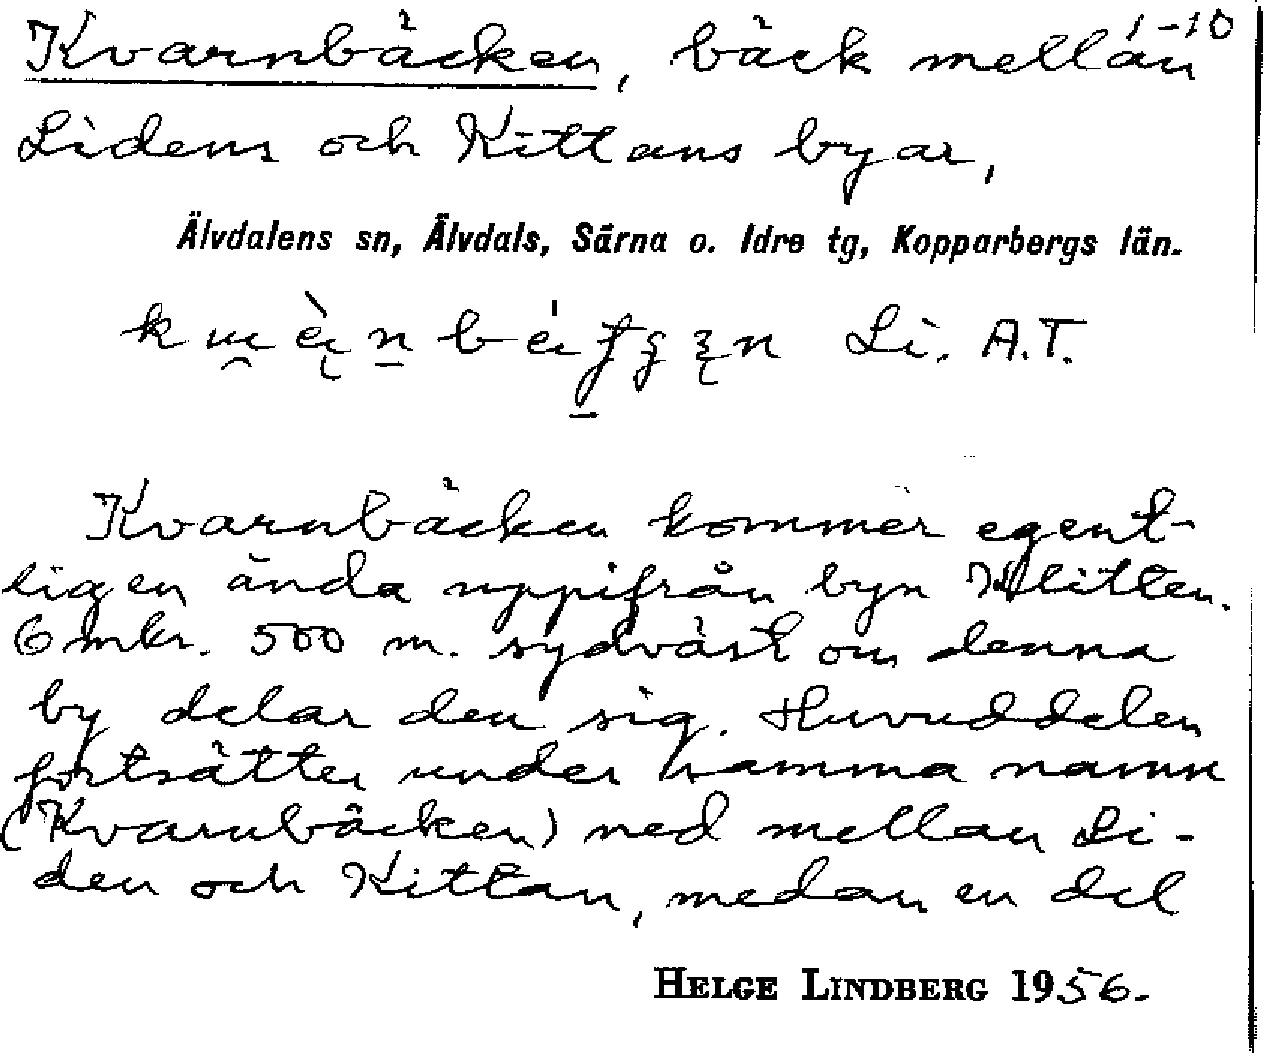 Kvarnbäcken, bäck mellan 1-10
Lidens och Kittans byar,
Älvdalens sn, Älvdals, Särna o. Idre tg, Kopparbergs län.
Li. A.T.
Kvarnbäcken kommer egent-
ligen ända uppifrån byn Klitten.
Omkr. 500 m. sydväst om denna
by delar den sig. Huvuddelen
fortsätter under samma namn
(Kvarnbäcken) ned mellan Li-
den och Kittan, medan en del
HELGE LINDBERG 1956.